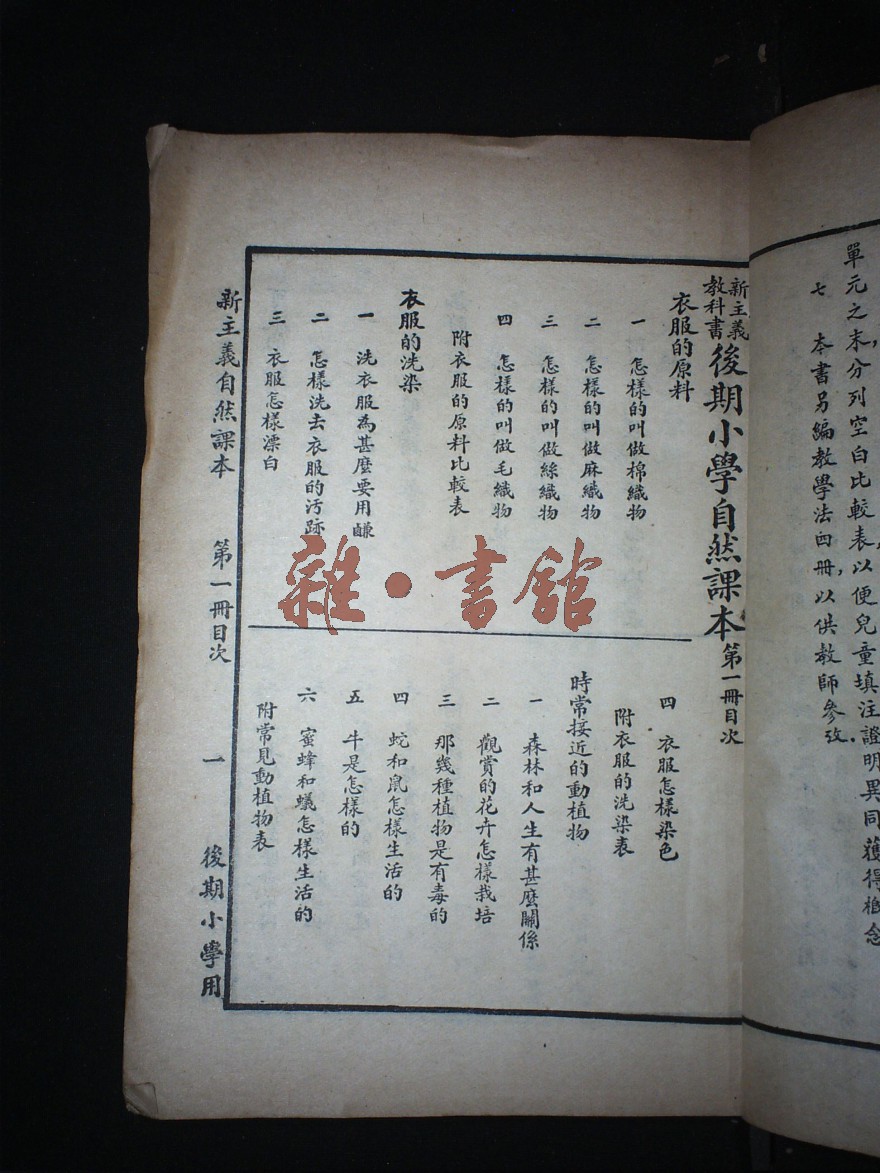 單元之末，分列空白比較表，以便兒童填注證明異同獲得概念
七　本書另編教學法四冊，以供教師參攷．
新主義
教科書
後期小學自然課本 第一冊目次
衣服的原料
一　怎樣的叫做棉織物
二　怎樣的叫做麻織物
三　怎樣的叫做絲織物
四　怎樣的叫做毛織物
附衣服的原料比較表
衣服的洗染
一　洗衣服為甚麼要用鹻
二　怎樣洗去衣服的汚跡
三　衣服怎樣漂白
四　衣服怎樣染色
附衣服的洗染表
時常接近的動植物
一　森林和人生有甚麼關係
二　觀賞的花卉怎樣栽培
三　那幾種植物是有毒的
四　蛇和鼠怎樣生活的
五　牛是怎樣的
六　蜜蜂和蟻怎樣生活的
附常見動植物表
新主義自然課本　第一冊目次　一　後期小學用
雜·書館